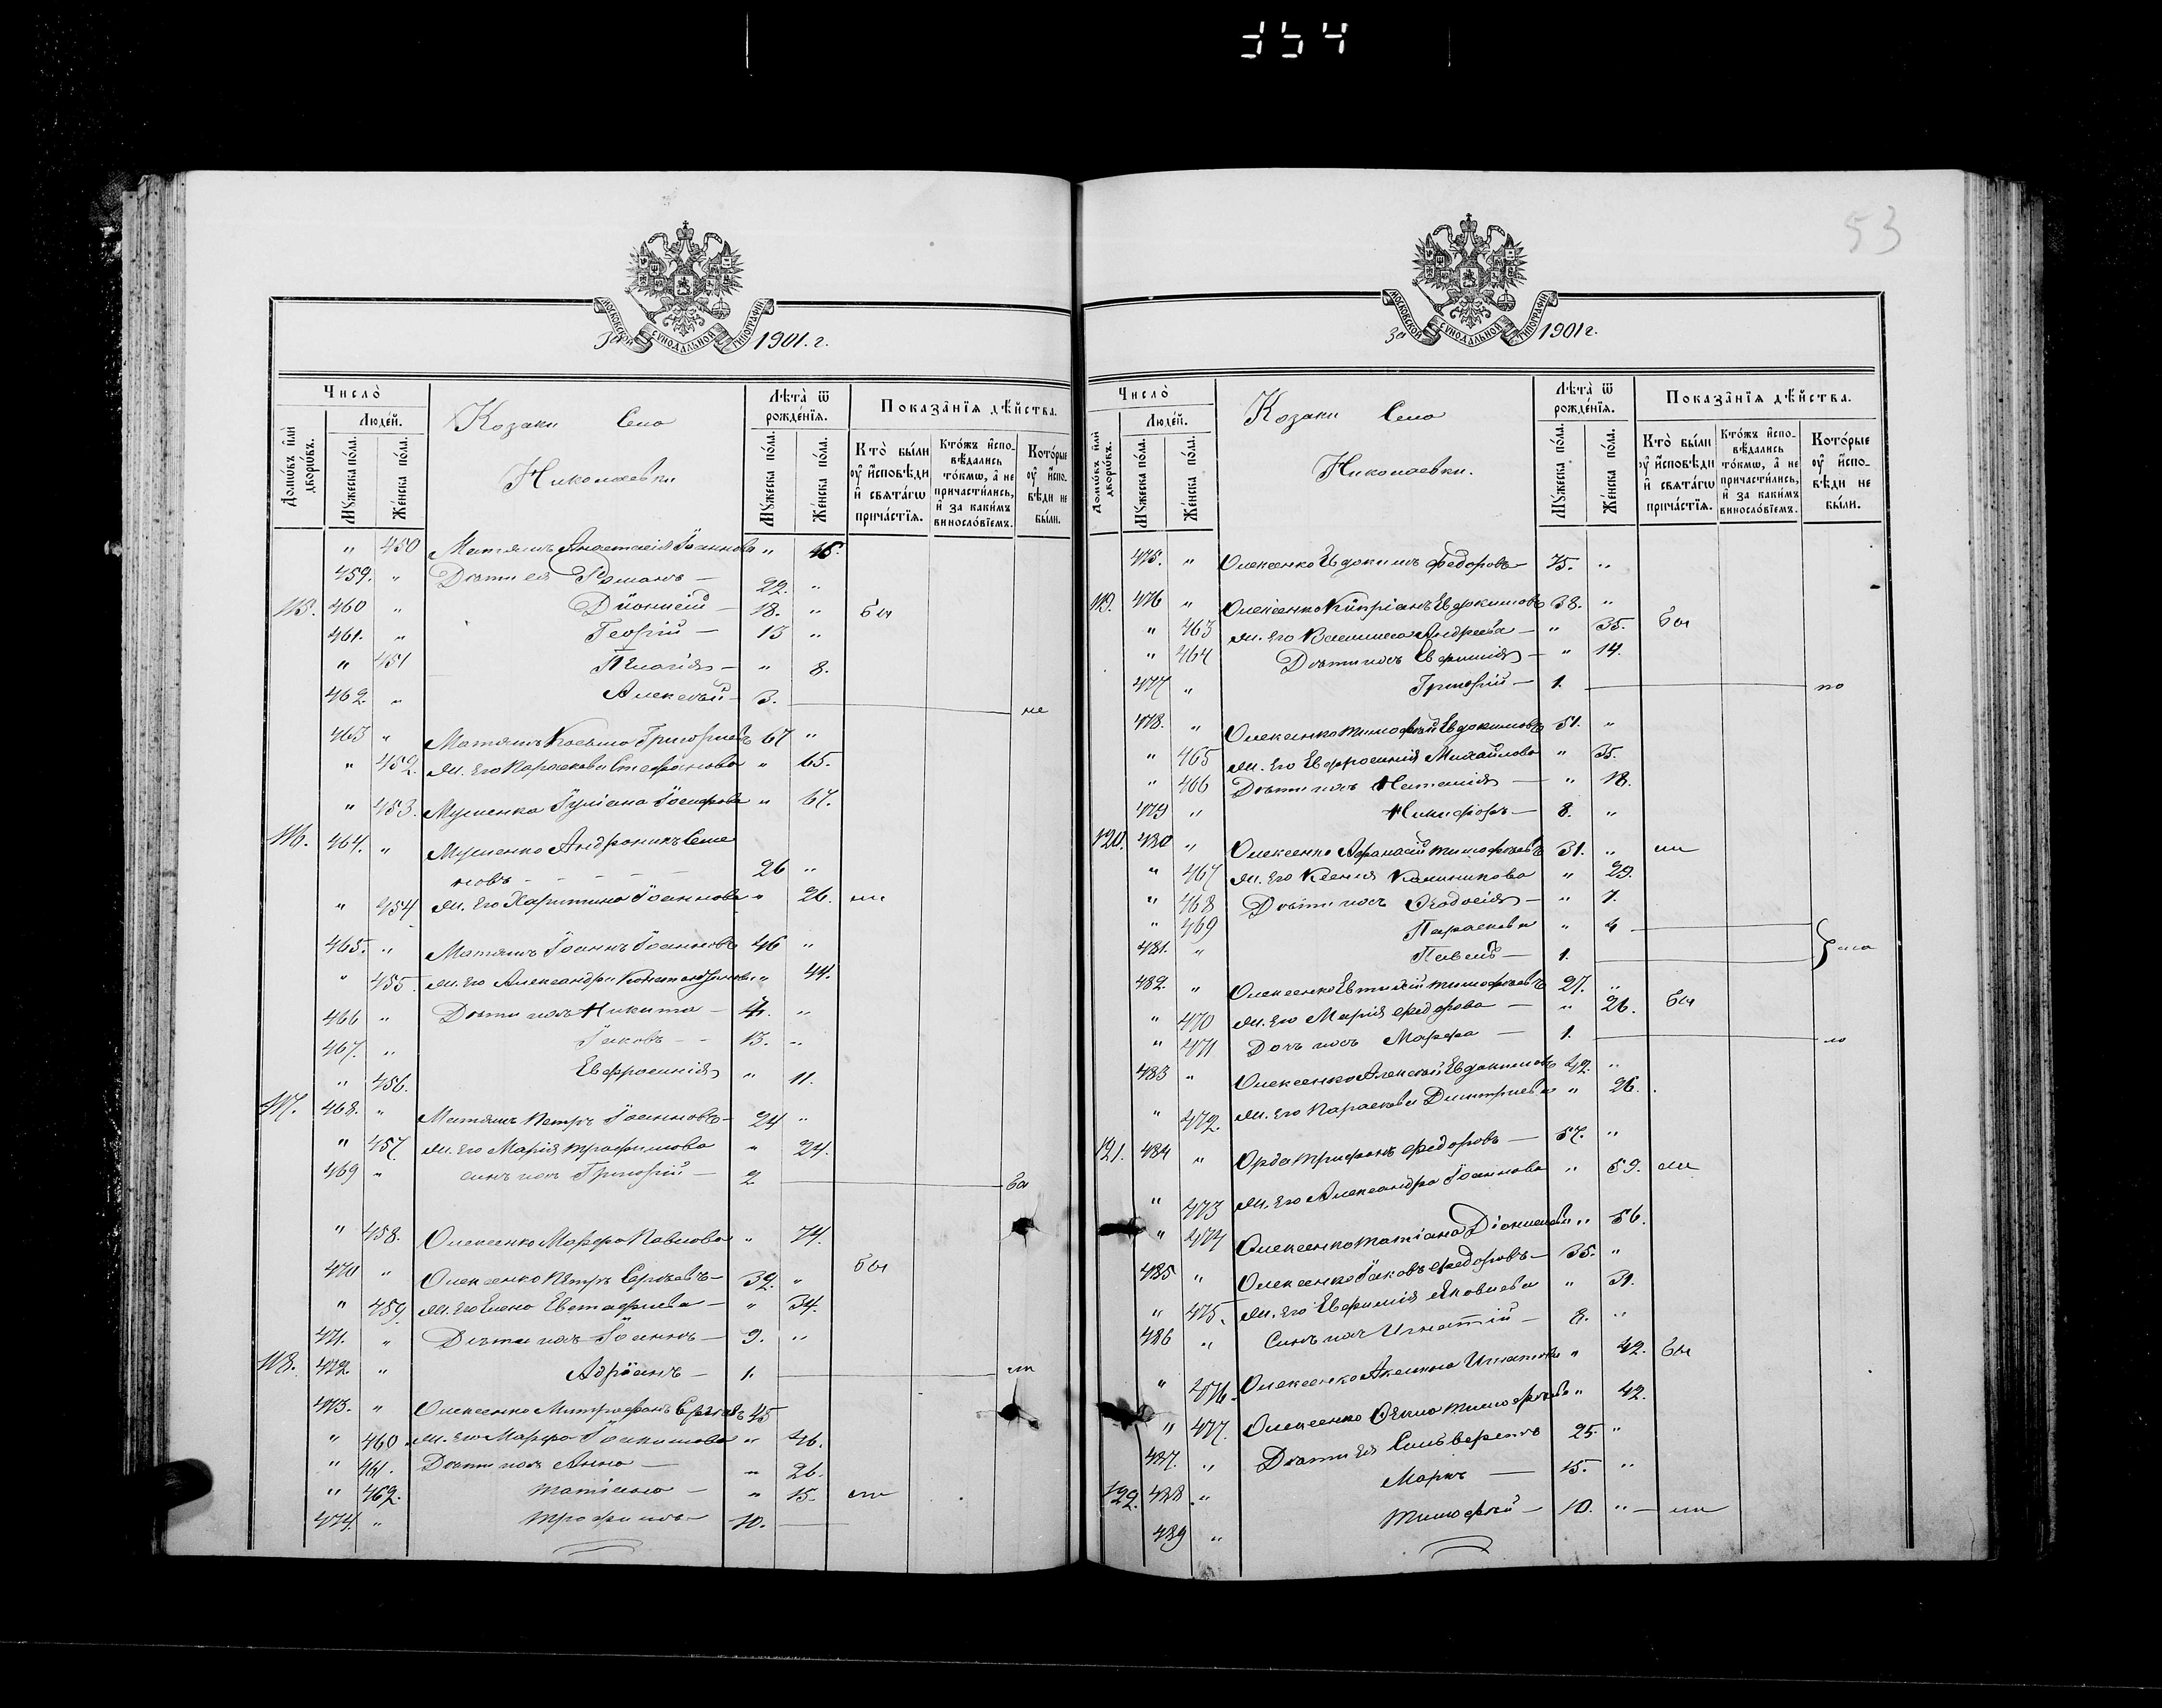 354
53
МОСКОВСКОЙ СУНОДАЛЬНОЙ ТИПОГРАФІИ
За 1901. г.
Число̀
Людéй.
Домѡ́въ и҆лѝ дворѡ́въ.
Мꙋ́жеска по́ла.
Же́нска по́ла.
Козаки Село
Николаевки
Лѣта̀ ѿ рожде́нїѧ.
Мꙋ́жеска по́ла.
Же́нска по́ла.
Показа̂нїѧ дѣ́йства.
Кто̀ бы́ли оу҆ и҆сповѣ́ди и҆ свѧта́гѡ прича́стїѧ.
Кто́жъ и҆спо-вѣ́дались то́кмѡ, а҆ не причасти́лись, и҆ за каки́мъ винослóвїемъ.
Кото́рые оу҆ и҆спо-вѣ́ди не бы́ли.
" 450 Матяшъ Анастасія Іоаннова " 45.
459. " Дѣти ея Романъ — 22. "
115. 460 " Діонисій — 18. " бы
461. " Георгій — 13 "
" 451 Пелагія — " 8.
462. " Алексѣй — 3. не
463 " Матяшъ Косьма Григорьевъ 67 "
" 452. ж. его Параскева Стефанова " 65.
" 453. Мусіенко Іуліана Іосифова " 67.
116. 464. " Мусіенко Андроникъ Семе
новъ - - - - - 26 "
" 454 ж. его Харитина Іоаннова " 26. ли
465. " Матяшъ Іоаннъ Іоанновъ 46 "
" 455. ж. его Александра Константинова " 44.
466 " Дѣти ихъ Никита —
467. " Іаковъ - - 13. "
" 456. Евфросинія " 11.
117. 468. " Матяшъ Петръ Іоанновъ — 24 "
" 457. ж. его Марія Трофимова " 24.
469 " сынъ ихъ Григорій — 2 бы
" 458. Олексенко Марфа Павлова " 74.
470 " Олексенко Петръ Сергѣевъ — 39. " бы
" 459. ж. его Елена Евстафіева — " 34.
471. " Дѣти ихъ Іоаннъ — 9. "
118. 472 " Адріанъ — 1. ли
473. " Олексенко Митрофанъ Сергѣевъ 45
" 460. ж. его Марфа Іоакимова " 46.
" 461. Дѣти ихъ Анна — " 26.
" 462. Татіана — " 15. ли
474. " Трофимъ — 10. —
МОСКОВСКОЙ СУНОДАЛЬНОЙ ТИПОГРАФІИ
За 1901 г.
Число̀
Людéй.
Домѡ́въ и҆лѝ дворѡ́въ.
Мꙋ́жеска по́ла.
Же́нска по́ла.
Козаки Село
Николаевки.
Лѣта̀ ѿ рожде́нїѧ.
Мꙋ́жеска по́ла.
Же́нска по́ла.
Показа̂нїѧ дѣ́йства.
Кто̀ бы́ли оу҆ и҆сповѣ́ди и҆ свѧта́гѡ прича́стїѧ.
Кто́жъ и҆спо-вѣ́дались то́кмѡ, а҆ не причасти́лись, и҆ за каки́мъ винослóвїемъ.
Кото́рые оу҆ и҆спо-вѣ́ди не бы́ли.
475. " Олексенко Евдокимъ Федоровъ — 75. "
119. 476 " Олексенко Кипріанъ Евдокимовъ 38. "
" 463 ж. его Василиса Андреева — " 35. бы
" 464 Дѣти ихъ Евфимія — " 14.
477 " Григорій — 1. по
478. " Олексенко Тимофѣй Евдокимовъ 51. "
" 465 ж. его Евфросинія Михайлова " 35.
" 466 Дѣти ихъ Наталія — " 18.
479 " Никифоръ — 8. "
120. 480 " Олексенко Афанасій Тимофѣевъ 31. " ли
" 467 ж. его Ксенія Калиникова " 29.
" 468 Дѣти ихъ Ѳеодосія — " 7.
" 469 Параскева " 4 —
481. " Павелъ — 1.
482. " Олексенко Евтихій Тимофѣевъ 27. "
" 470 ж. его Марія Федорова — " 26. бы
" 471 Дочь ихъ Марфа — 1. ло
483 " Олексенко Алексѣй Евдокимовъ 42. "
" 472. ж. его Параскева Димитріева " 26.
121. 484 " Орда Трифонъ Федоровъ — 57. "
" 473 ж. его Александра Іоаннова " 59. ли
" 474 Олексенко Татіана Діонисіева " 56.
485 " Олексенко Іаковъ Федоровъ — 35. "
" 475. ж. его Евфимія Яковлева " 31.
486 " Сынъ ихъ Игнатій — 8. "
" 476. Олексенко Акилина Игнатова " 42. бы
" 477. Олексенко Ѳекла Тимофѣева " 42.
487. " Дѣти ея Сильверстъ 25. "
122. 488 " Маркъ — 15. "
489 " Тимофѣй — 10. " — ли